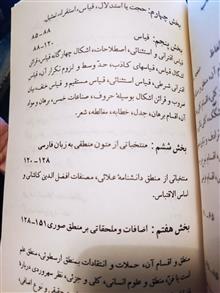 بخش چهارم: حجت یا استدلال، قیاس، استقراء، تمثیل
۸۵-۸۸
بخش پنجم: قیاس ۸۸-۱۲۰
قیاس اقترانی و استثنائی، اصطلاحات، اشکال چهارگانه قیاس، قرائن
اشکال قیاس، قیاسهای کاذب، حد وسط و لزوم تکرار آن، قیاس
اقترانی شرطی، قیاس استثنائی، قیاس مستقیم و قیاس خلف، بیان
ضروب و قرائن اشکال بوسیلهٔ حروف، صناعات خمس، برهان و مواد
آن، اقسام برهان، جدل، خطابه، مغالطه، شعر.
بخش ششم: منتخباتی از متون منطقی به زبان فارسی
۱۲۰-۱۲۸
منتخباتی از منطق دانشنامهٔ علائی، مصنفات افضل الدین کاشانی و
اساس الاقتباس.
بخش هفتم: اضافات و ملحقاتی بر منطق صوری ۱۲۸-۱۵۱
منطق و اقسام آن، حملات و انتقادات بمنطق ارسطوئی، منطق علم
منطق و علوم انسانی، کلی و جزئی، نظر سهروردی درباره